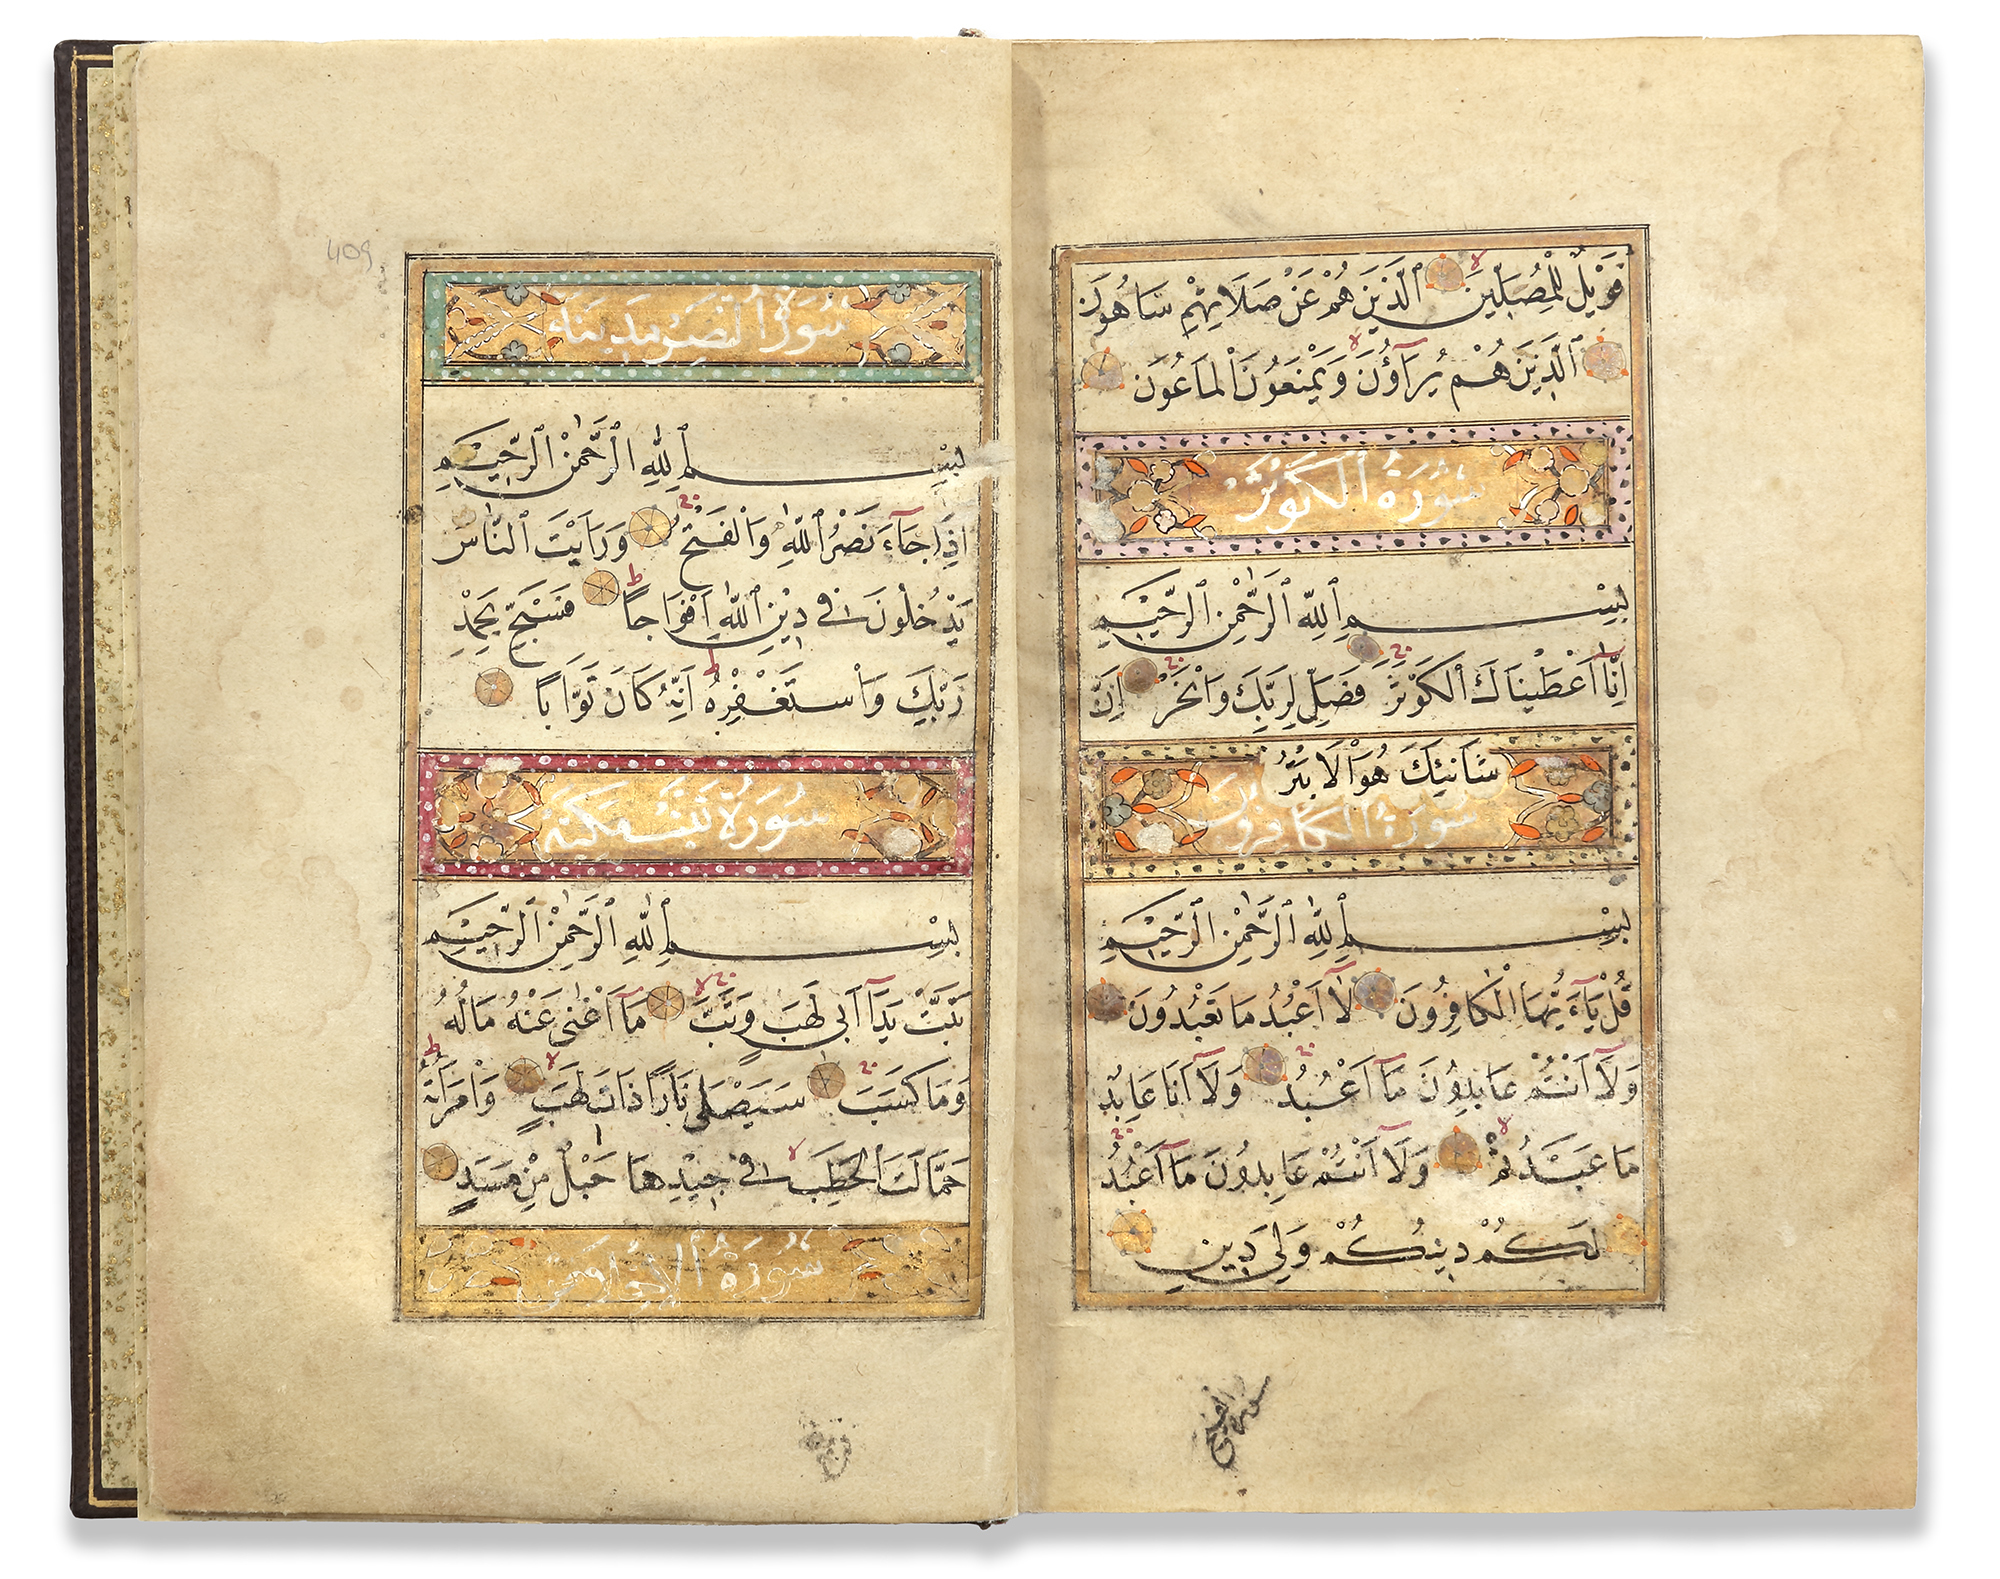 فَوَيْلٌ لِلْمُصَلِّينَ ٱلَّذِينَ هُمْ عَنْ صَلَاتِهِمْ سَاهُونَ
ٱلَّذِينَ هُمْ يُرَآؤُنَ وَيَمْنَعُونَ ٱلْمَاعُونَ
سُورَةُ ٱلْكَوْثَرْ
بِسْمِ ٱللَّهِ ٱلرَّحْمٰنِ ٱلرَّحِيمِ
اِنَّآ اَعْطَيْنَاكَ ٱلْكَوْثَرَ فَصَلِّ لِرَبِّكَ وَٱنْحَرْ اِنَّ
شَانِئَكَ هُوَ ٱلْاَبْتَرُ
سُورَةُ ٱلْكَافِرُونَ
بِسْمِ ٱللَّهِ ٱلرَّحْمٰنِ ٱلرَّحِيمِ
قُلْ يَآءَيُّهَا ٱلْكَافِرُونَ لَآ اَعْبُدُ مَا تَعْبُدُونَ
وَلَآ اَنْتُمْ عَابِدُونَ مَآ اَعْبُدُ وَلَآ اَنَا عَابِدٌ
مَا عَبَدْتُمْ وَلَآ اَنْتُمْ عَابِدُونَ مَآ اَعْبُدُ
لَكُمْ دِينُكُمْ وَلِيَ دِينِ
409
سُورَةُ ٱلنَّصْرِ مَدَنِيَّة
بِسْمِ ٱللَّهِ ٱلرَّحْمٰنِ ٱلرَّحِيمِ
اِذَا جَآءَ نَصْرُ ٱللَّهِ وَٱلْفَتْحُ وَرَاَيْتَ ٱلنَّاسَ
يَدْخُلُونَ فِي دِينِ ٱللَّهِ اَفْوَاجًا فَسَبِّحْ بِحَمْدِ
رَبِّكَ وَٱسْتَغْفِرْهُ اِنَّهُ كَانَ تَوَّابًا
سُورَةُ تَبَّتْ مَكِّيَّة
بِسْمِ ٱللَّهِ ٱلرَّحْمٰنِ ٱلرَّحِيمِ
تَبَّتْ يَدَآ اَبِي لَهَبٍ وَتَبَّ مَآ اَغْنٰى عَنْهُ مَالُهُ
وَمَا كَسَبَ سَيَصْلٰى نَارًا ذَاتَ لَهَبٍ وَٱمْرَاَتُهُ
حَمَّالَتَ ٱلْحَطَبِ فِي جِيدِهَا حَبْلٌ مِنْ مَسَدٍ
سُورَةُ ٱلْاِخْلَاصِ